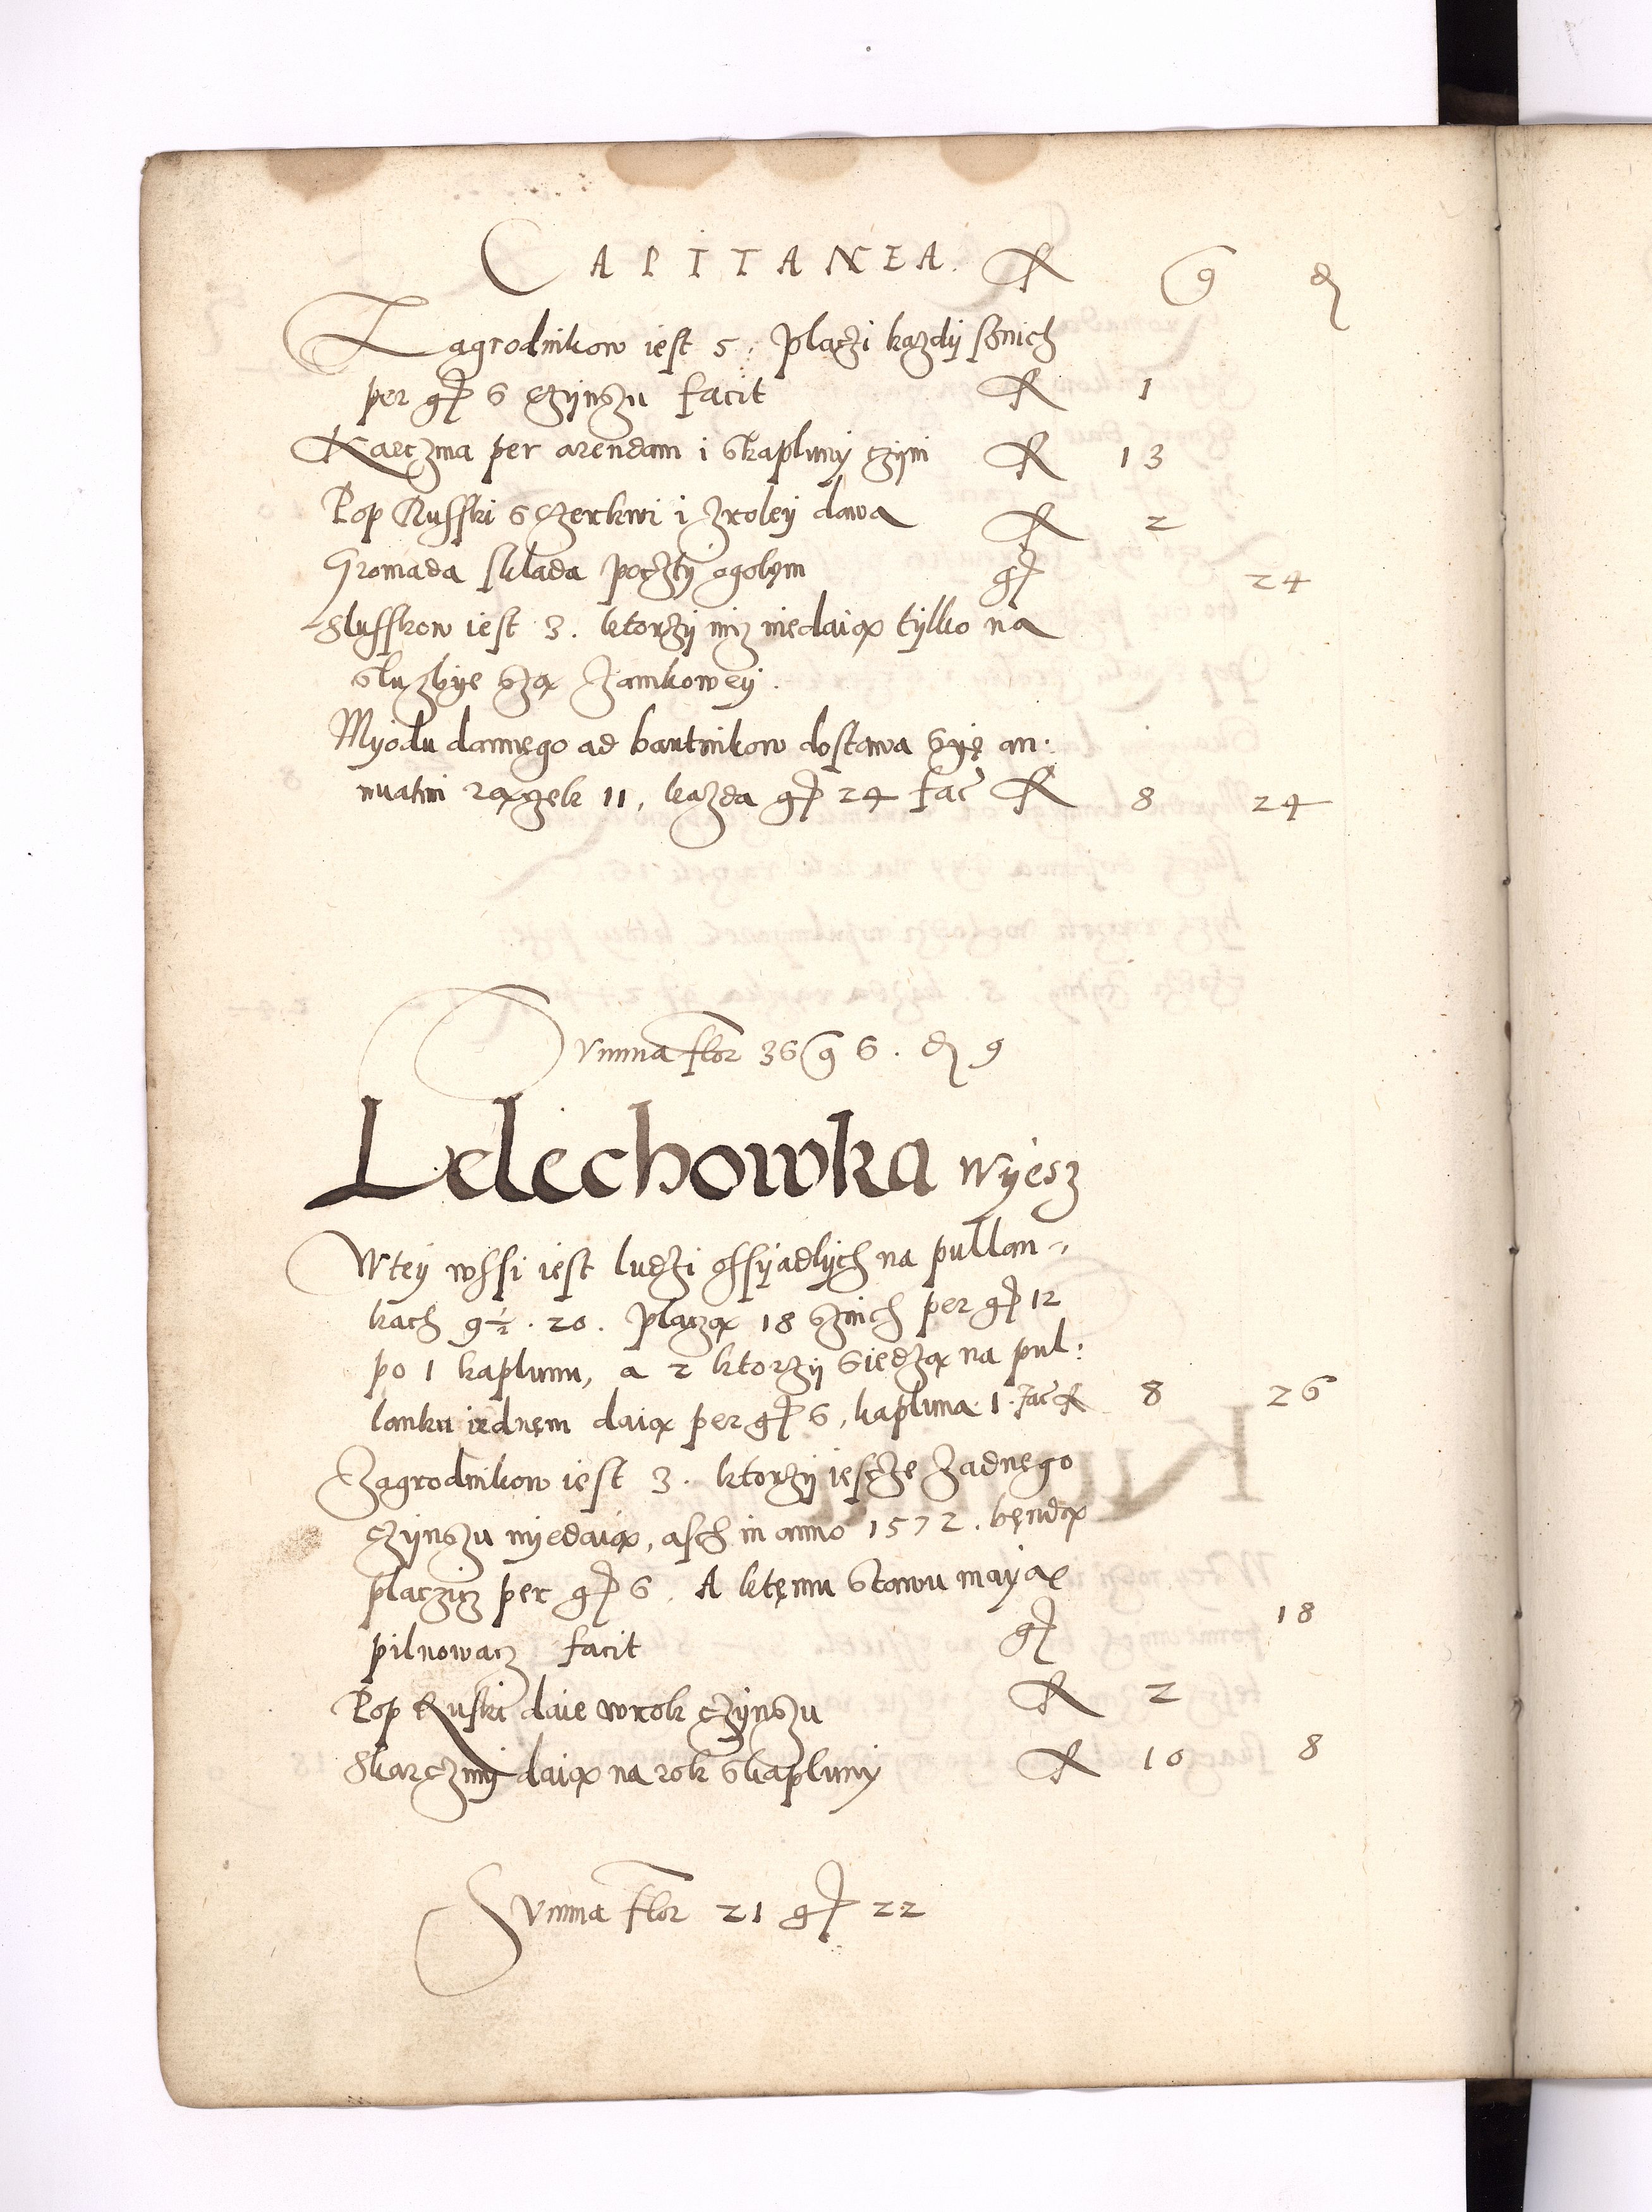 CAPITANEA. fl g d
Zagrodnikow iest 5. placzi kazdÿ sznich
per gr 6 czÿnszu facit fl 1
Karczma per arendam i skaplunÿ czÿni fl 13
Pop Russki s czerkwi i zroleÿ dawa fl 2
Gromada sklada poczty ogolem gr 24
Sluszkow iest 3. ktorzÿ nicz niedaią tÿlko na
sluzbÿe szą Zamkoweÿ.
Mÿodu dannego ad bartnikow dostawa sÿę an:
nuatim rączek 11, kazda gr 24 fac fl 8 24
Summa flor 36 g 6. d 9
Lelechowka wÿesz
W teÿ wssi iest ludzi ossÿadlÿch na pullan-
kach 9½. 20. placzą 18 sznich per gr 12
po 1 kaplunu, a 2 ktorzÿ siedzą na pul:
lanku iednem daią per gr 6, kapluna 1. fac fl 8 26
Zagrodnikow iest 3. ktorzÿ iescze Zadnego
czÿnszu nÿedaią, asch in anno 1572. bendą
placzicz per gr 6. A ktemu stawu maÿą
pilnowacz facit gr 18
Pop Ruski daie wrok czÿnszu fl 2
Skarczmÿ daią na rok skaplunÿ fl 10 8
Summa flor 21 gr 22